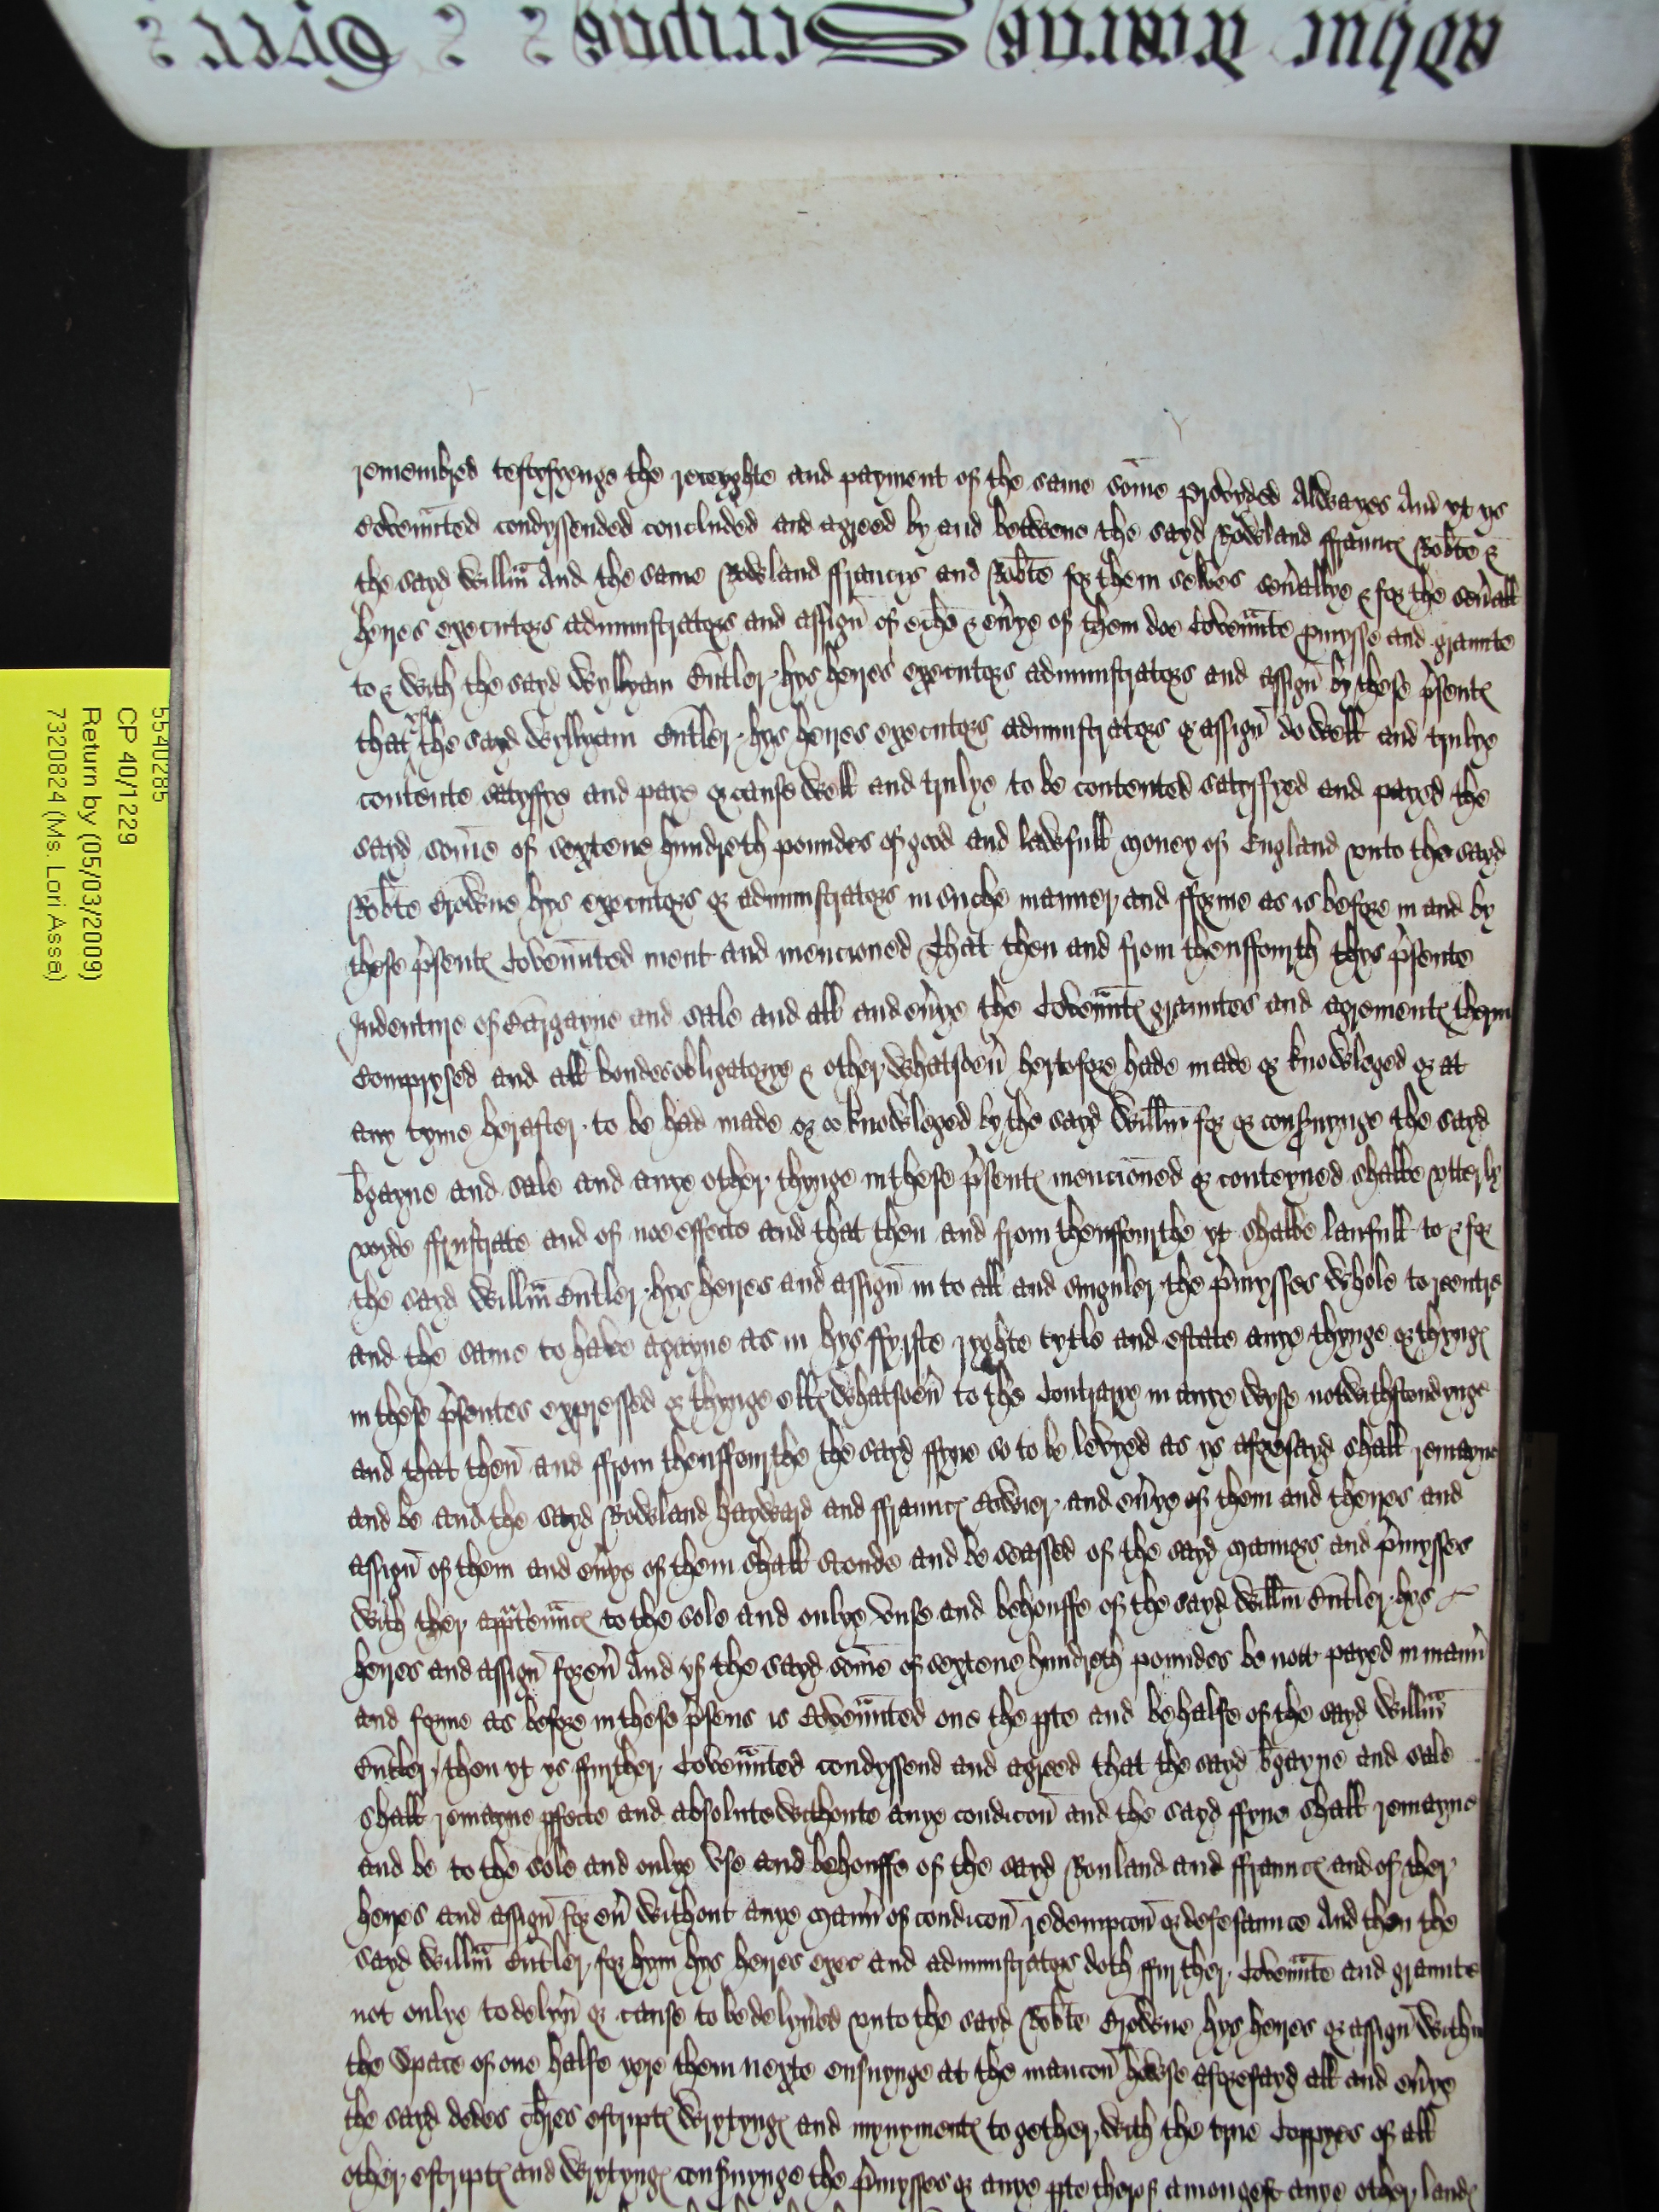 adhuc Termino Scripne Trin
5540285
CP 40/1229
Return by (05/03/2009)
7320824 (Ms. Lori Asse)
remembred testyfyenge the receyghte and payment of the same some provyded Alwayes And yt ys
Covenñted condyssended concluded and agreed by and betwene the sayd Rowland ffraunc Robte &
the sayd Willm And the same Rowland ffrancys and Robte for them selves sevallye & for the sevall
heyres executors admynistrators and assign of eche & evye of them doe Covennte promysse and graunte
to & with the sayd Wyllyam Butler hys heyres executors admynistrators and assign by these psent
that yf the sayd Wyllyam Butler hys heyres executors admynistrators or assign do well and trulye
contente satysfye and paye or cause well and trulye to be contented satysfyed and payed the
sayd some of sextene hundreth poundes of good and lawfull money of England vnto the sayd
Robte Browne hys executors or admynistrators in suche manner and fforme as is before in and by
these psent Covennted ment and mencioned That then and from thensffourth thys psente
Indenture of Bargayne and sale and all and evye the Covennt grauntes and agrement therin
Comprysed and all bondes obligatorye & other whatsoev hertofore hade made or knowleged or at
any tyme herafter to be had made or knowleged by the sayd Willm for or consnynge the sayd
bgayne and sale and anye other thynge in these psent mencioned or conteyned shalbe vtterly
voyde ffrustrate and of noe effecte and that then and from thensffourthe yt shalbe laufull to & for
the sayd Willm Butler hys heyres and assign in to all and singuler the pmysses whole to reentre
and the same to have agayne as in hys ffyrste ryghte tytle and estate anye thynge or thyng
in these psentes expressed or thynge ell whatsoev to the Contrarye in anye wyse notwithstondynge
and that then and ffrom thensffourthe the sayd ffyne so to be levyed as ys aforesayd shall remayne
and be and the sayd Rowland hayward and ffraunc Bowier and evye of them and theyres and
assign of them and evye of them shall stonde and be seassed of the sayd mannors and pmysses
with ther apptennc to the sole and onlye vnse and behouffe of the sayd Willm Butler hys
heyres and assign forev And yf the sayd some of sextene hundreth poundes be nott payed in mann
and forme as before in these psens is Covennted one the pte and behalfe of the sayd Willm
Butler then yt ys ffurther Covennted condyssend and agreed that the sayd bgayne and sale
shall remayne pfecte and absolute withoute anye condicon and the sayd ffyne shall remayne
and be to the sole and onlye vse and behouffe of the sayd Rouland and ffraunc and of ther
heyres and assign for ev without anye mann of condicon redempcon or defesaunce And then the
sayd Willm Butler for hym hys heyres exec and admynistrators doth ffurther Covennte and graunte
not onlye to delyv or cause to be delyved vnto the sayd Robte Browne hys heyres or assign within
the space of one halfe yere them nexte ensuynge at the mancon howse aforesayd all and evye
the sayd dedes chres escript wrytyng and mynyment together with the true Coppyes of all
other escript and wrytyng consnynge the pmysses or anye pte therof amongest anye other land